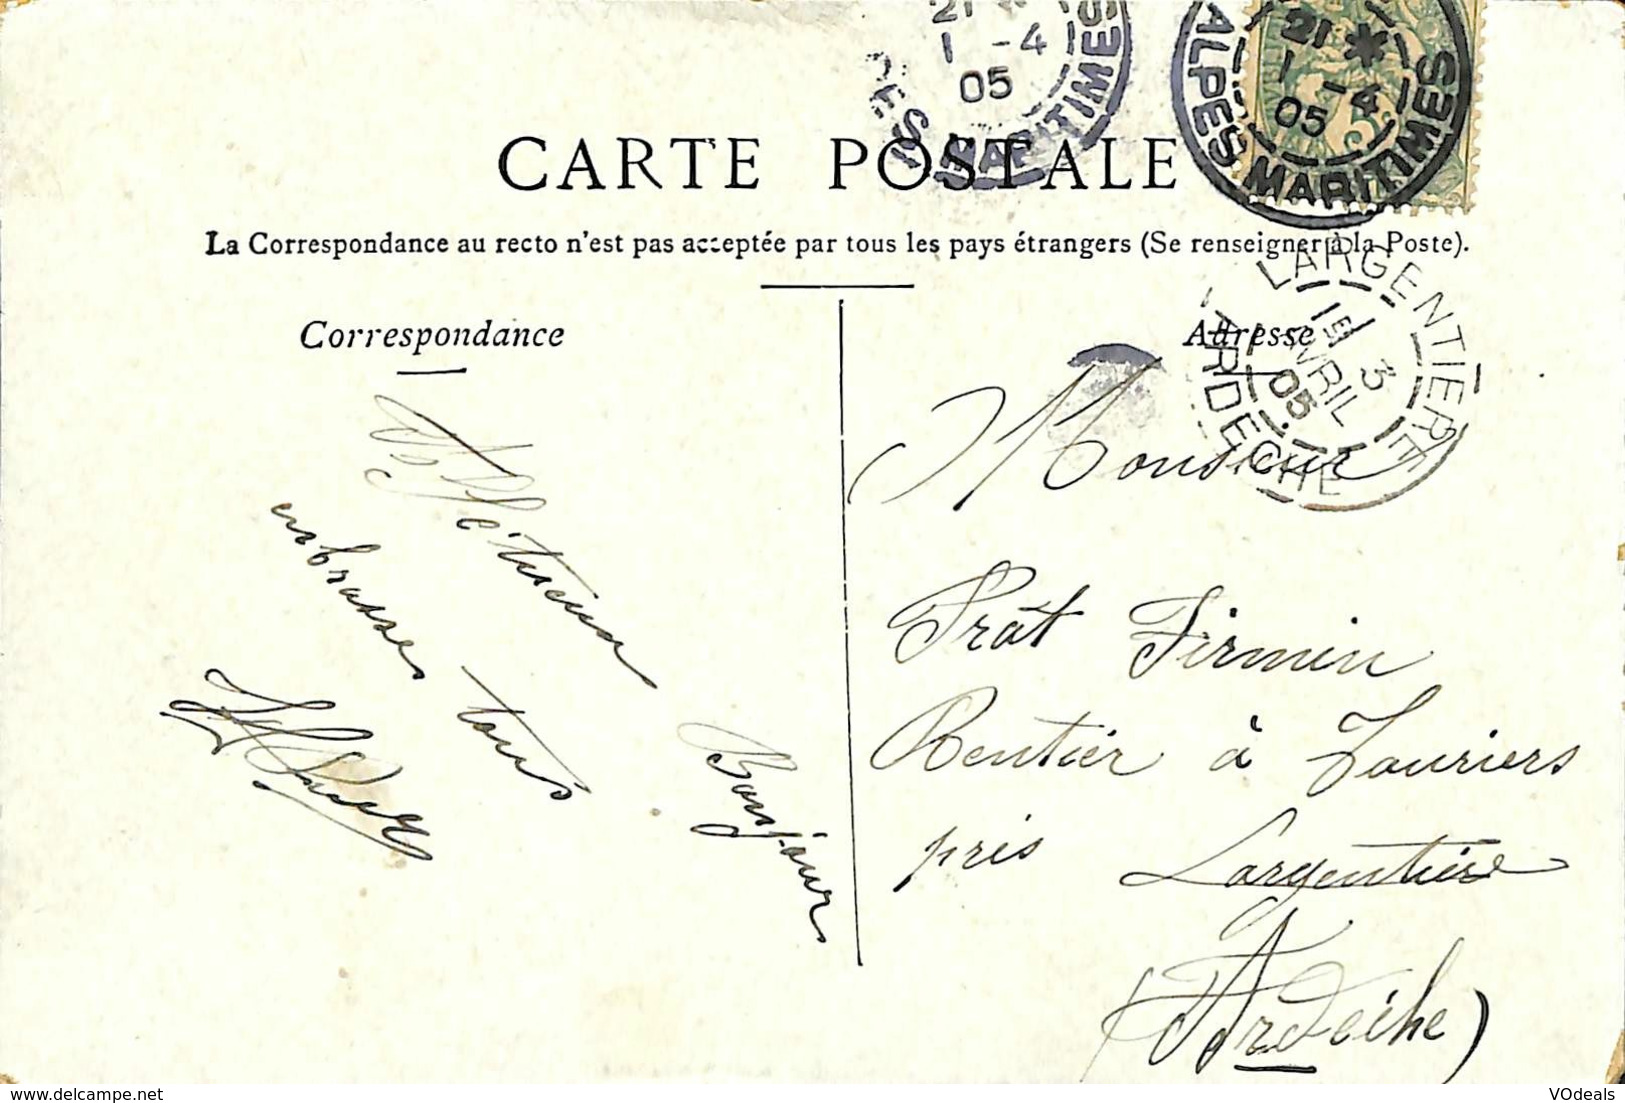 21 *
1 -4
05
MARITIMES
21 *
1 -4
05
ALPES MARITIMES
CARTE POSTALE
La Correspondance au recto n'est pas acceptée par tous les pays étrangers (Se renseigner à la Poste).
LARGENTIERE
1E 3
AVRIL
05
ARDECHE
Correspondance
Affectueux Bonjour
embrasses tous
Adresse
Monsieur
Prat Firmin
Rentier à Lauriers
près Largentière
(Ardèche)
VOdeals